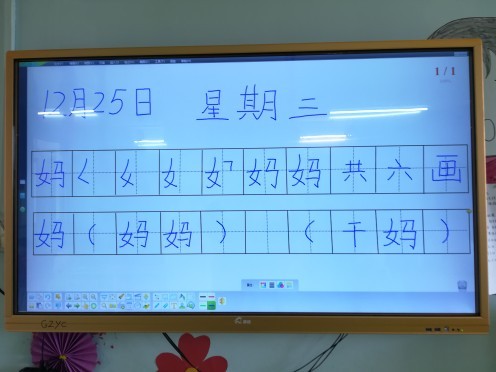 1/1
12月25日 星期三
妈 ㄑ 女 女 妈 妈 共六画
妈（妈妈） （干妈）
GZYC